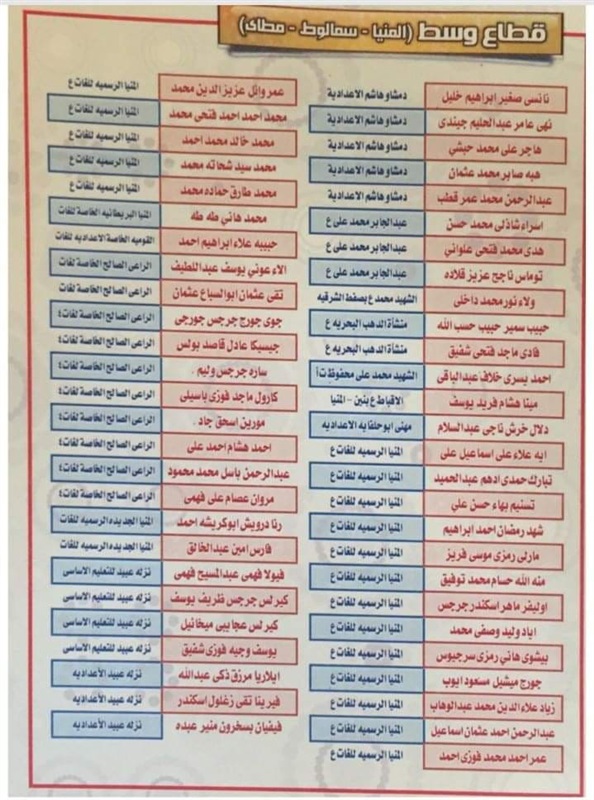 قطاع وسط (المنيا - سمالوط - مطاى)
نانسى صغير ابراهيم خليل دمشاو هاشم الاعدادية
نهى عامر عبدالحليم جيندى دمشاو هاشم الاعدادية
هاجر على محمد حبشي دمشاو هاشم الاعدادية
هبه صابر محمد عثمان دمشاو هاشم الاعدادية
عبدالرحمن محمد عمر قطب دمشاو هاشم الاعدادية
اسراء شاذلى محمد حسن عبدالجابر محمد على ع
هدى محمد فتحى علوانى عبدالجابر محمد على ع
توماس ناجح عزيز قلاده عبدالجابر محمد على ع
ولاء نور محمد داخلى الشهيد محمد ع بصفط الشرقيه
حبيب سمير حبيب حسب الله منشأة الدهب البحريه ع
فادى ماجد فتحى شفيق منشأة الدهب البحريه ع
احمد يسرى خلاف عبدالباقى الشهيد محمد على محفوظ ت أ
مينا هشام فريد يوسف الاقباط ع بنين - المنيا
دلال خرش ناجى عبدالسلام مهنى ابوحلفايه الاعداديه
ايه علاء على اسماعيل على المنيا الرسميه للغات ع
تبارك حمدى ادهم عبدالحميد المنيا الرسميه للغات ع
تسنيم بهاء حسن على المنيا الرسميه للغات ع
شهد رمضان احمد ابراهيم المنيا الرسميه للغات ع
مارلى رمزى موسى فريز المنيا الرسميه للغات ع
منه الله حسام محمد توفيق المنيا الرسميه للغات ع
اوليفر ماهر اسكندر جرجس المنيا الرسميه للغات ع
اياد وليد وصفى محمد المنيا الرسميه للغات ع
بيشوى هانى رمزى سرجيوس المنيا الرسميه للغات ع
جورج ميشيل مسعود ايوب المنيا الرسميه للغات ع
زياد علاء الدين محمد عبدالوهاب المنيا الرسميه للغات ع
عبدالرحمن احمد عثمان اسماعيل المنيا الرسميه للغات ع
عمر احمد محمد فوزى احمد المنيا الرسميه للغات ع
عمر وائل عزيز الدين محمد المنيا الرسميه للغات ع
محمد احمد احمد فتحى محمد المنيا الرسميه للغات ع
محمد خالد محمد احمد المنيا الرسميه للغات ع
محمد سيد شحاته محمد المنيا الرسميه للغات ع
محمد طارق حماده محمد المنيا الرسميه للغات ع
محمد هاني طه طه المنيا البريطانيه الخاصة للغات
حبيبه علاء ابراهيم احمد القوميه الخاصة الاعداديه للغات
الاء عونى يوسف عبداللطيف الراعى الصالح الخاصة للغات
تقى عثمان ابوالسباع عثمان الراعى الصالح الخاصة للغات
جوى جورج جرجس جورجى الراعى الصالح الخاصة للغات ع
جيسيكا عادل قاصد بولس الراعى الصالح الخاصة للغات ع
ساره جرجس وليم . الراعى الصالح الخاصة للغات ع
كارول ماجد فوزى باسيلى الراعى الصالح الخاصة للغات ع
مورين اسحق جاد . الراعى الصالح الخاصة للغات ع
احمد هشام احمد على الراعى الصالح الخاصة للغات ع
عبدالرحمن باسل محمد محمود الراعى الصالح الخاصة للغات ع
مروان عصام على فهمى الراعى الصالح الخاصة للغات ع
رنا درويش ابوكريشه احمد المنيا الجديده الرسميه للغات
فارس امين عبدالخالق المنيا الجديده الرسميه للغات
فيولا فهمى عبدالمسيح فهمى نزله عبيد للتعليم الاساسى
كيرلس جرجس ظريف يوسف نزله عبيد للتعليم الاساسى
كيرلس عجايبى ميخائيل نزله عبيد للتعليم الاساسى
يوسف وجيه فوزى شفيق نزله عبيد للتعليم الاساسى
ايلاريا مرزق ذكى عبدالله نزله عبيد الأعداديه
فيرينا تقى زغلول اسكندر نزله عبيد الأعداديه
فيفيان بسخرون منير عبده نزله عبيد الأعداديه